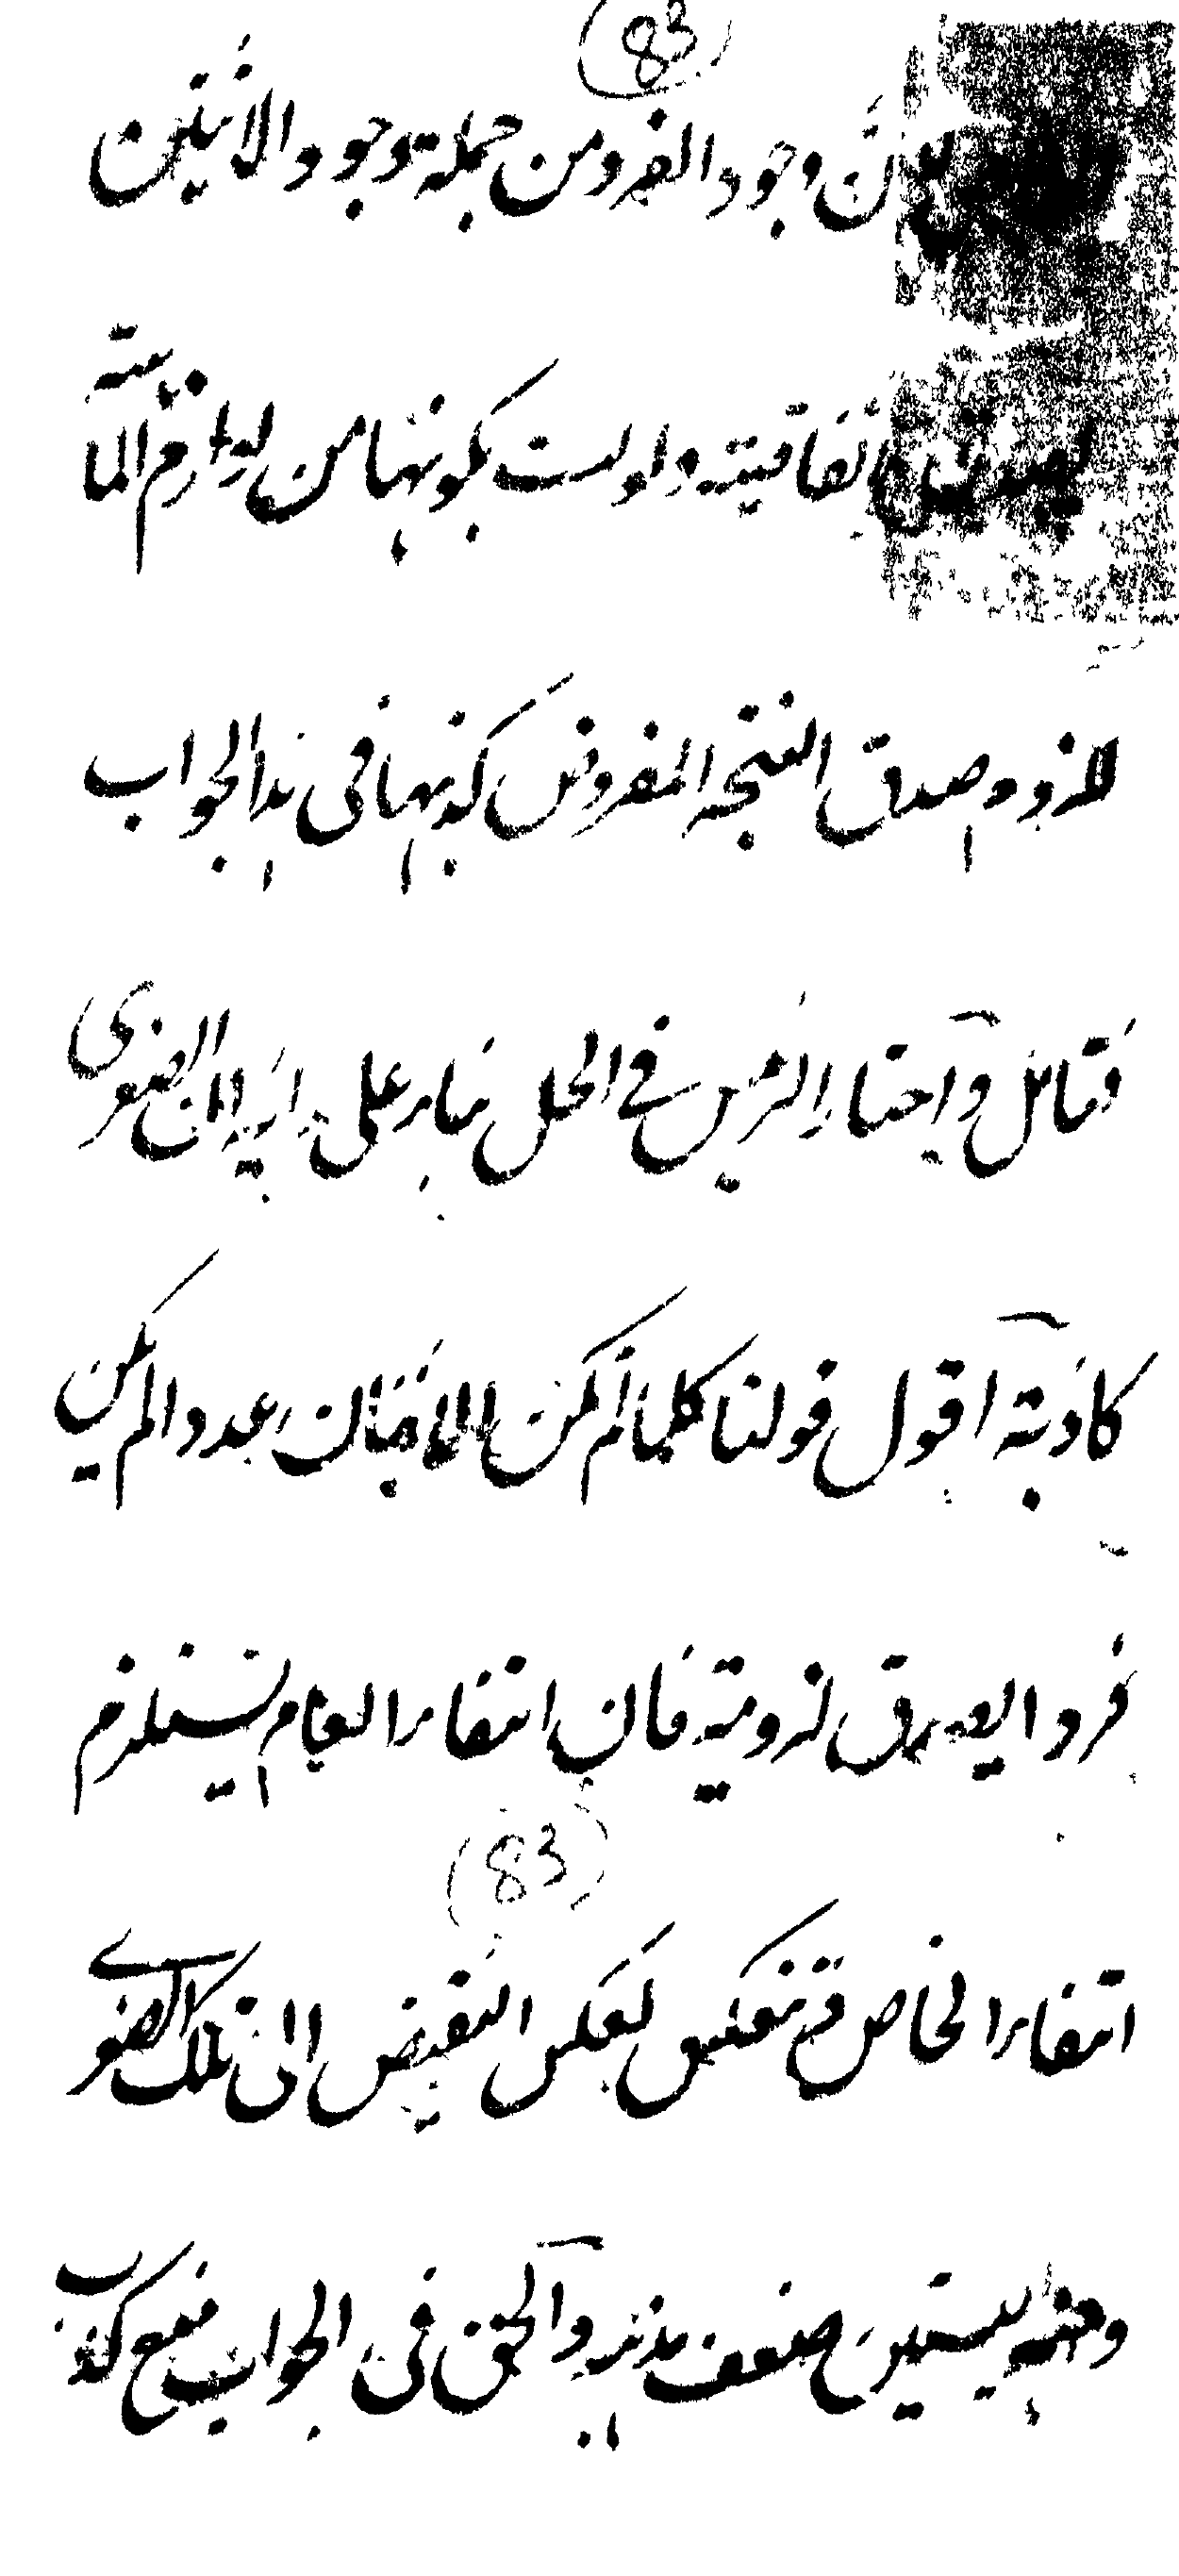 (83)
ن وجود الفرد من جملة وجود الاثنين
اتفاقية ولو ليست بكونها من لوازم الماهية
صدق النتيجة المفروض كذبها في هذا الجواب
فتامل و اختار الرئيس في الحل بناء على رايه ان الصغرى
كاذبة اقول قولنا كلما لم يكن الاثنان عددا لم يكن
فردا يصدق لزومية فان انتفاء العام يستلزم
(83)
انتفاء الخاص فتنعكس بعكس النقيض الى تلك الصغرى
ومنه يستبين ضعف مذهبه و الحق في الجواب منع كذب